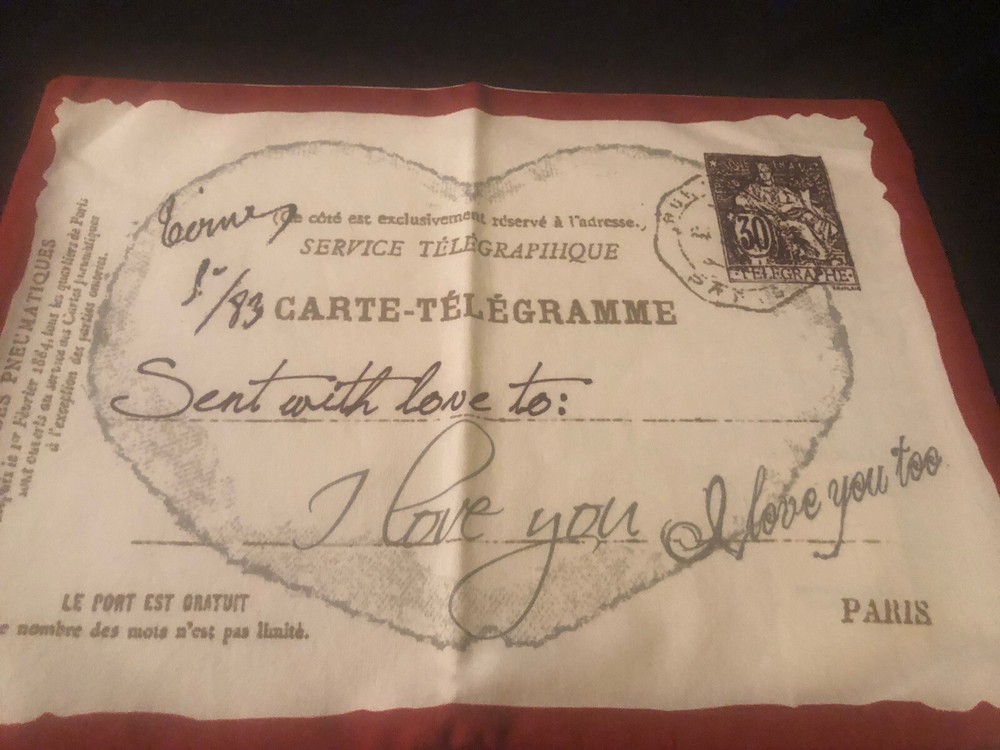 (Ce côté est exclusivement réservé à l'adresse.)
SERVICE TÉLÉGRAPHIHQUE
CARTE-TÉLÉGRAMME
Sent with love to:
I love you
I love you too
LE PORT EST GRATUIT
nombre des mots n'est pas limité.
PARIS
30
TELEGRAPHE
PNEUMATIQUES
le 1er Février 1884, tous les quartiers de Paris
sont ouverts au service aux Cartes pneumatiques
à l'exception des parties